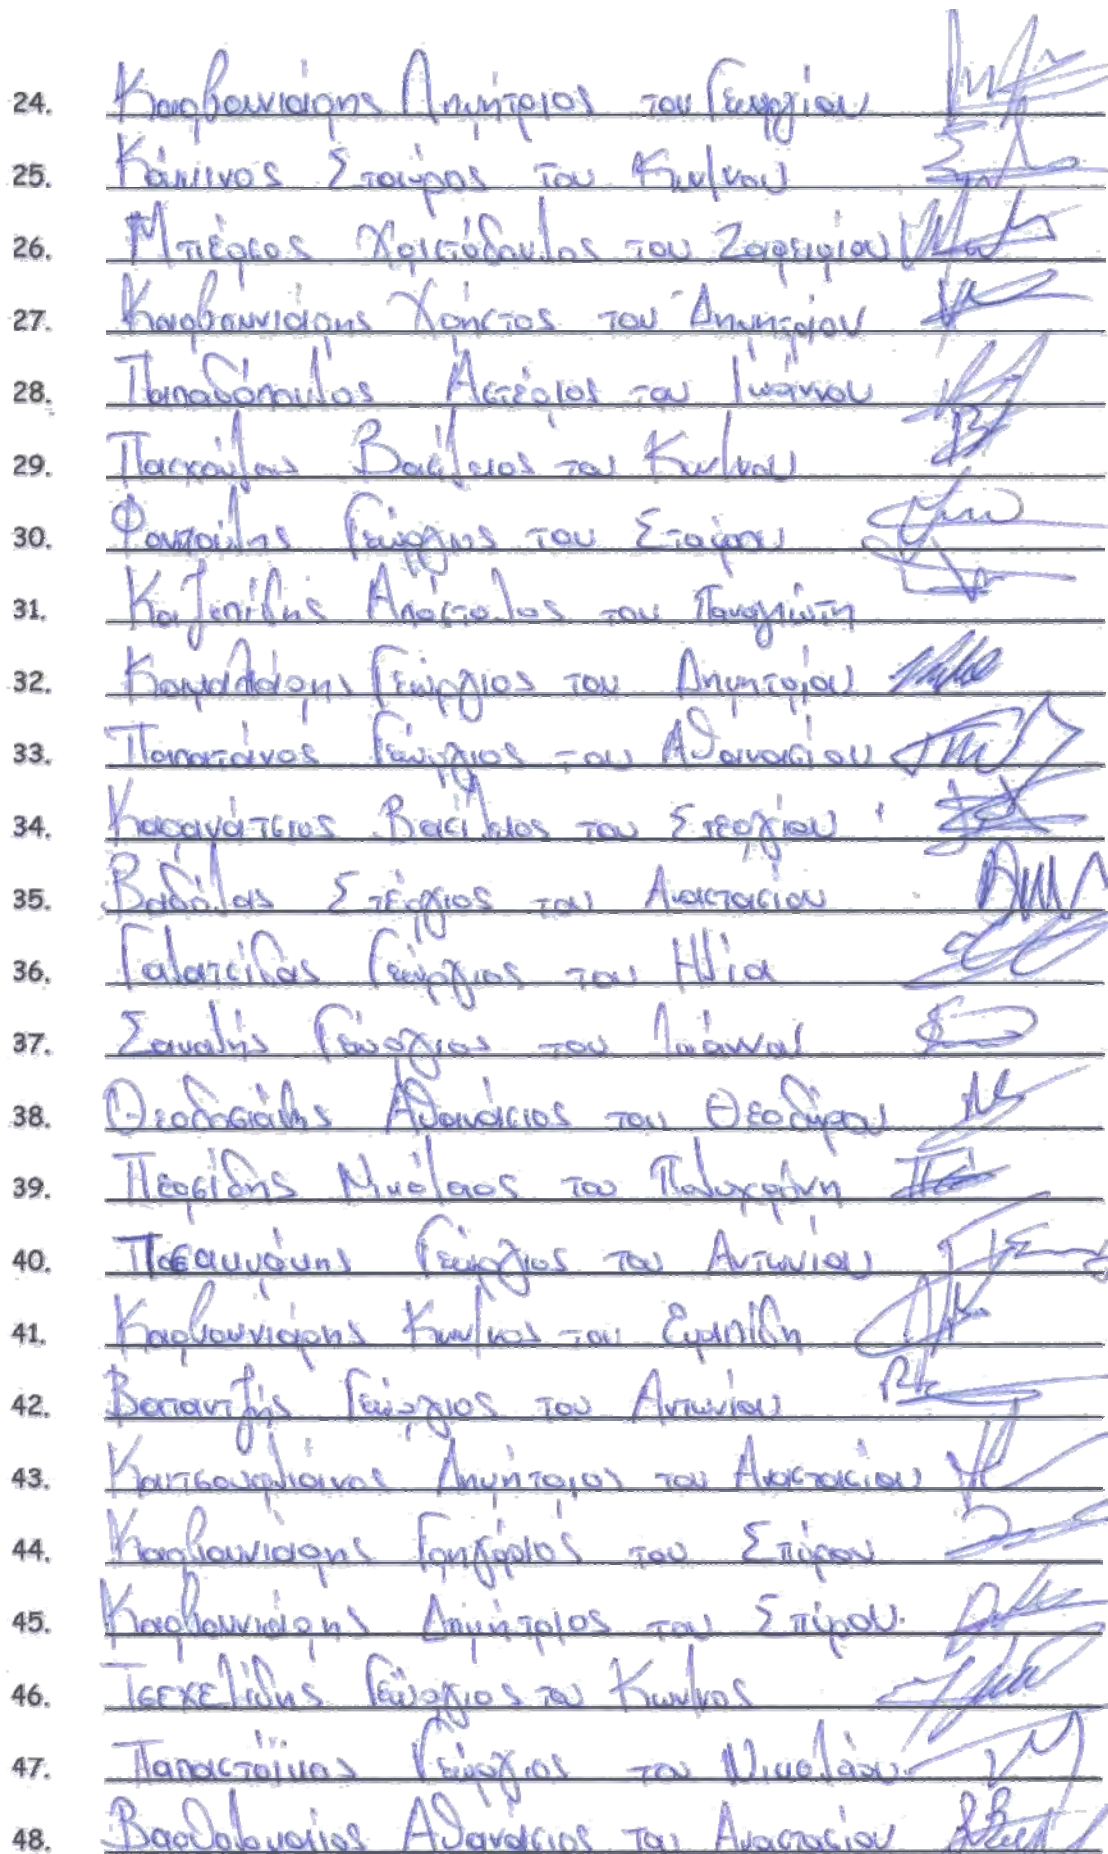 24. Καρβουνιάρης Δημήτριος του Γεωργίου
25. Κάμινος Σταύρος του Κων/νου
26. Μπέρσος Χριστόδουλος του Ζαφειρίου
27. Καρβουνιάρης Χρήστος του Δημητρίου
28. Παπαδόπουλος Αστέριος του Ιωάννου
29. Πασχούλας Βασίλειος του Κων/νου
30. Γεώργιος του Σταύρου
31. Απόστολος του Παναγιώτη
32. Καμαλιάρης Γεώργιος του Δημητρίου
33. Γεώργιος του Αθανασίου
34. Καρανάτσιος Βασίλειος του Στεργίου
35. Βαδόλας Στέργιος του Αναστασίου
36. Γαλατσίδας Γεώργιος του Ηλία
37. Γεώργιος του Ιωάννου
38. Θεοδοσιάδης Αθανάσιος του Θεοδώρου
39. Περσίδης Νικόλαος του Πολυχρόνη
40. Γεώργιος του Αντωνίου
41. Καρβουνιάρης Κων/νος του Ευριπίδη
42. Βαπαντζής Γεώργιος του Αντωνίου
43. Δημήτριος του Αναστασίου
44. Καρβουνιάρης Γρηγόριος του Σπύρου
45. Καρβουνιάρης Δημήτριος του Σπύρου
46. Τσεχελίδης Γεώργιος του Κων/νος
47. Παπαστόικος Γεώργιος του Νικολάου
48. Βαρθολομαίος Αθανάσιος του Αναστασίου